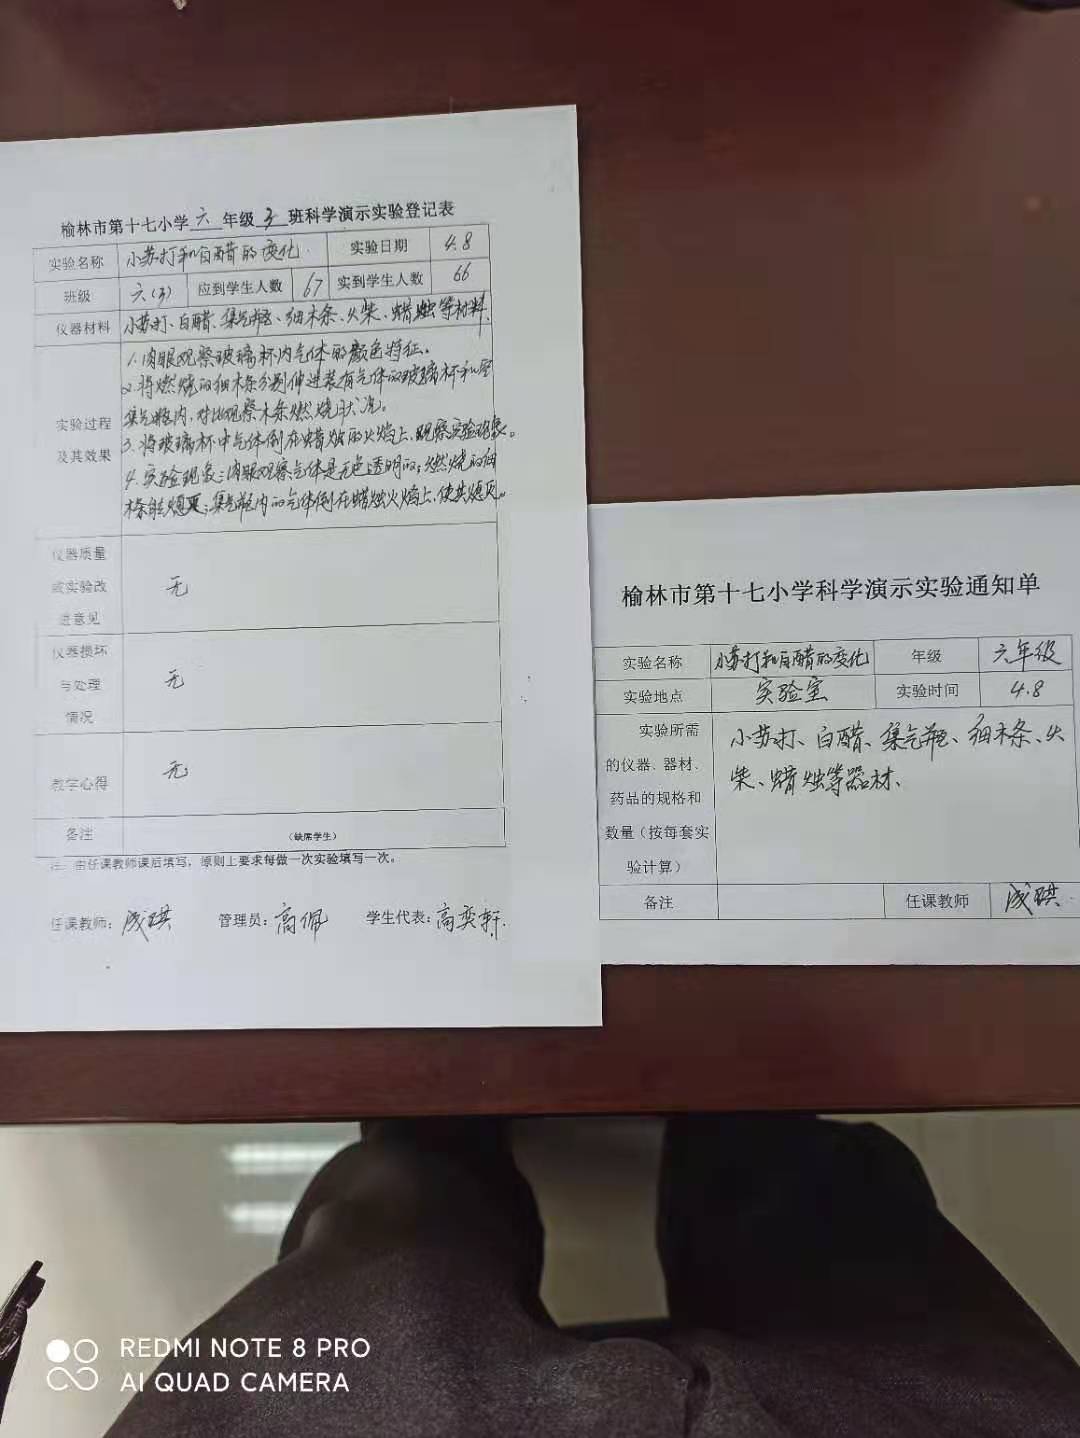 榆林市第十七小学六年级3班科学演示实验登记表
实验名称 小苏打和白醋的变化 实验日期 4.8
班级 六(3) 应到学生人数 67 实到学生人数 66
仪器材料 小苏打、白醋、集气瓶、细木条、火柴、蜡烛等材料.
实验过程
及其效果
1.肉眼观察玻璃杯内气体的颜色特征。
2.将燃烧的细木条分别伸进装有气体的玻璃杯和空
集气瓶内,对比观察木条燃烧状况。
3.将玻璃杯中气体倒在蜡烛的火焰上,观察实验现象。
4.实验现象:肉眼观察气体是无色透明的;燃烧的细
木条能熄灭;集气瓶内的气体倒在蜡烛火焰上,使其熄灭。
仪器质量
或实验改
进意见
无
仪器损坏
与处理
情况
无
教学心得 无
备注 (缺席学生)
注:由任课教师课后填写,原则上要求每做一次实验填写一次。
任课教师:成琪 管理员:高佩 学生代表:高奕轩.
榆林市第十七小学科学演示实验通知单
实验名称 小苏打和白醋的变化 年级 六年级
实验地点 实验室 实验时间 4.8
实验所需
的仪器、器材、
药品的规格和
数量(按每套实
验计算)
小苏打、白醋、集气瓶、细木条、火
柴、蜡烛等器材、
备注 任课教师 成琪.
REDMI NOTE 8 PRO
AI QUAD CAMERA